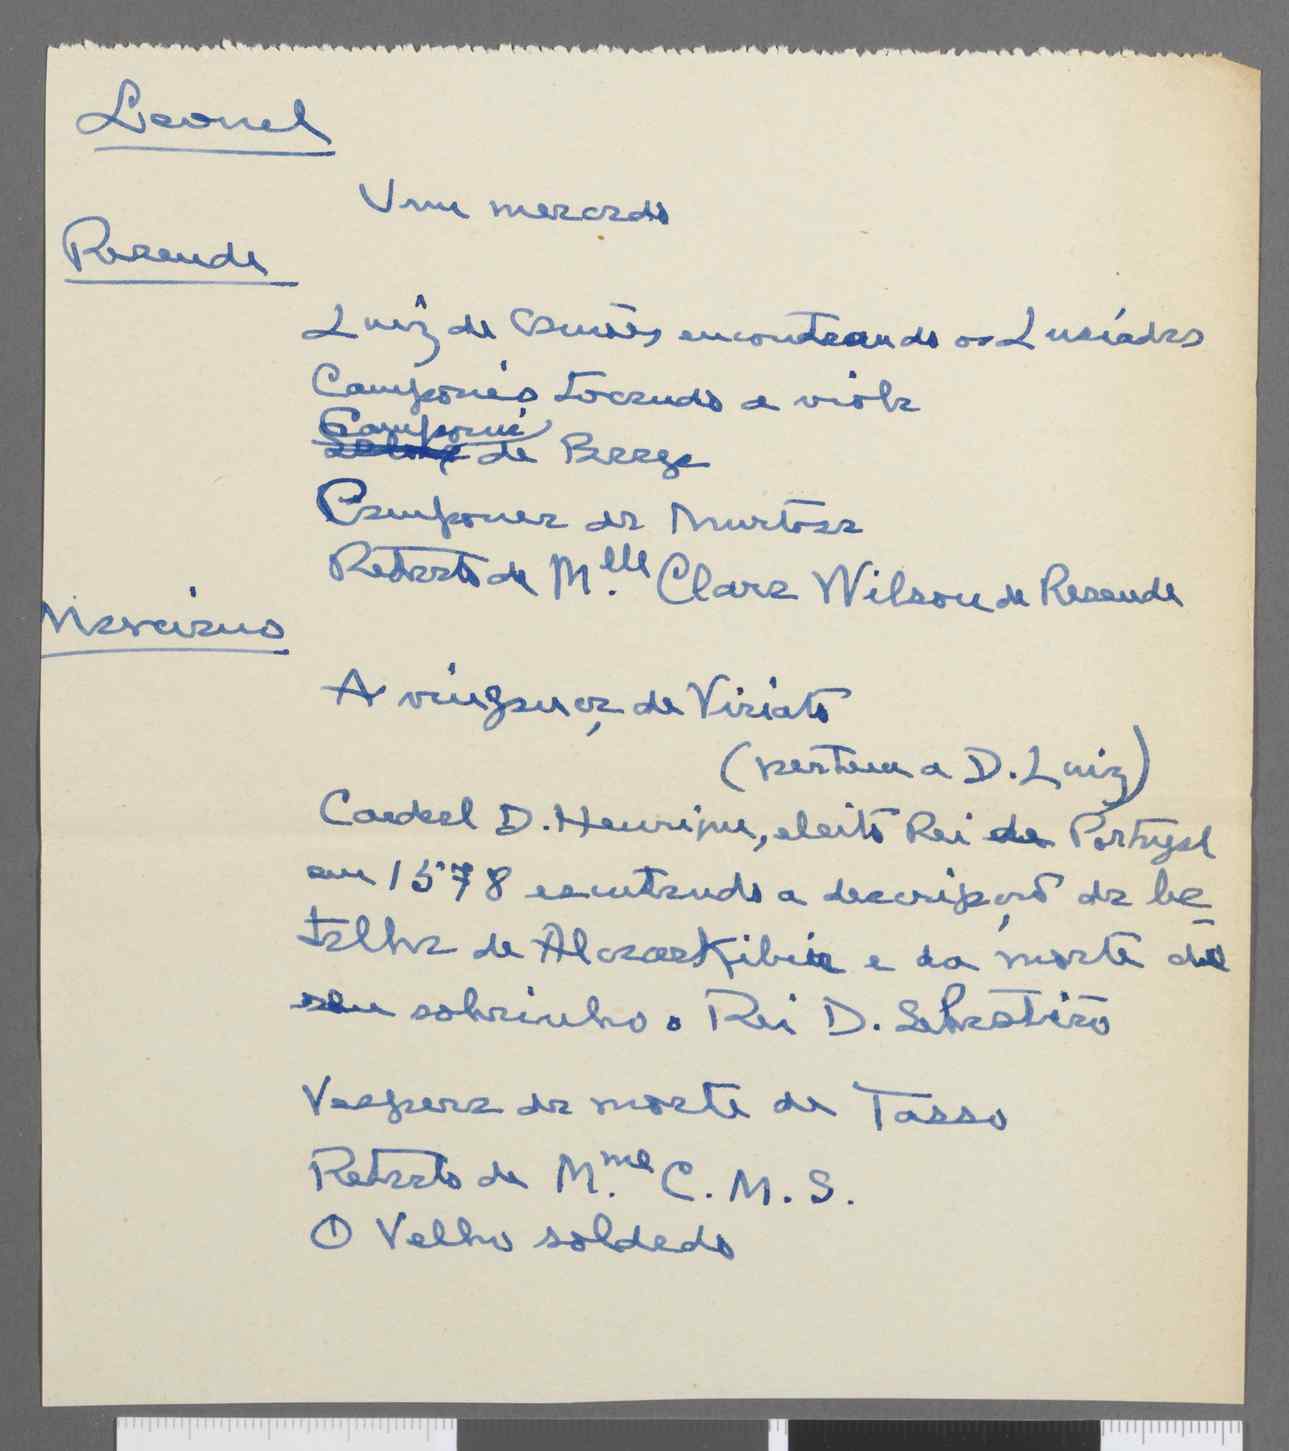 Leonel
Um mercado
Resende
Luiz de Camões encontrando os Lusíadas
Camponês tocando a viola
Camponê
de Braga
Camponez da Murtosa
Retrato de M.elle Clara Wilson de Resende
Marciano
A vingança de Viriato
(pertence a D. Luiz)
Cardeal D. Henrique, eleito Rei de Portugal
em 1578 escutando a descripção da ba-
talha de Alcacerkibir e da morte do
seu sobrinho o Rei D. Sebastião
Vespera da morte de Tasso
Retrato de M.me C. M. S.
O Velho soldado